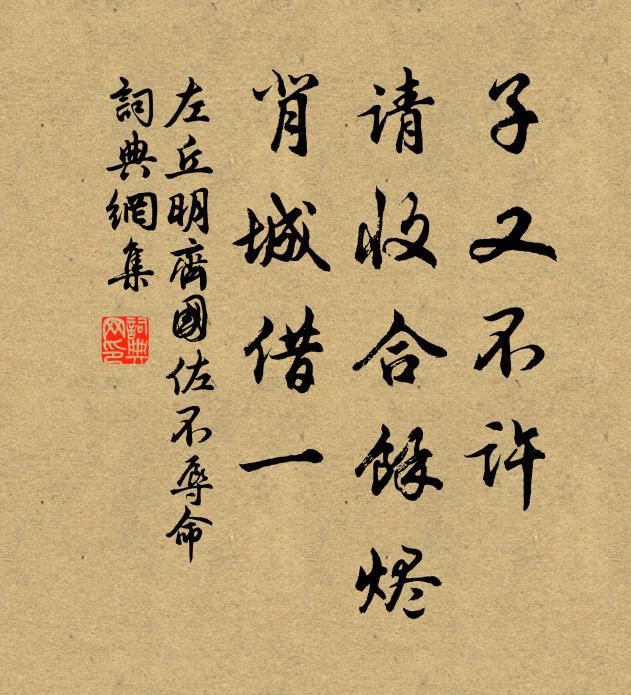 子又不许
请收合餘烬
背城借一
左丘明齊國佐不辱命
詞典網集
詞典
网印